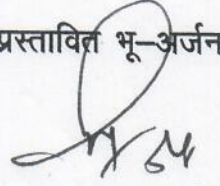 प्रस्तावित भू–अर्जन